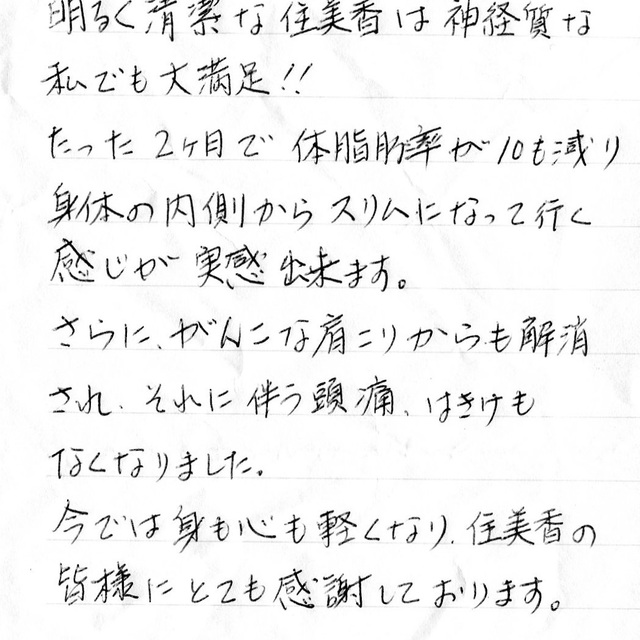 明るく清潔な佳美香は神経質な
私でも大満足!!
たった2ヶ月で体脂肪率が10も減り
身体の内側からスリムになって行く
感じが実感出来ます。
さらに、がんこな肩こりからも解消
され、それに伴う頭痛、はきけも
なくなりました。
今では身も心も軽くなり、佳美香の
皆様にとても感謝しております。